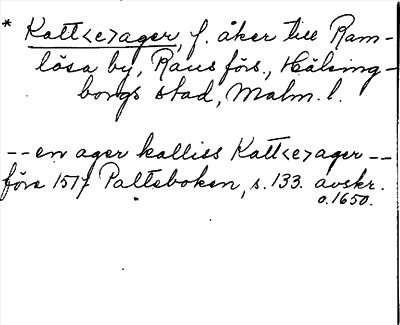 * Katt<e>ager, f. åker till Ram-
lösa by, Raus förs., Hälsing-
borgs stad, Malm. l.
-- en ager kalliss Katt<e>ager --
före 1517 Palteboken, s. 133. avskr.
o. 1650.